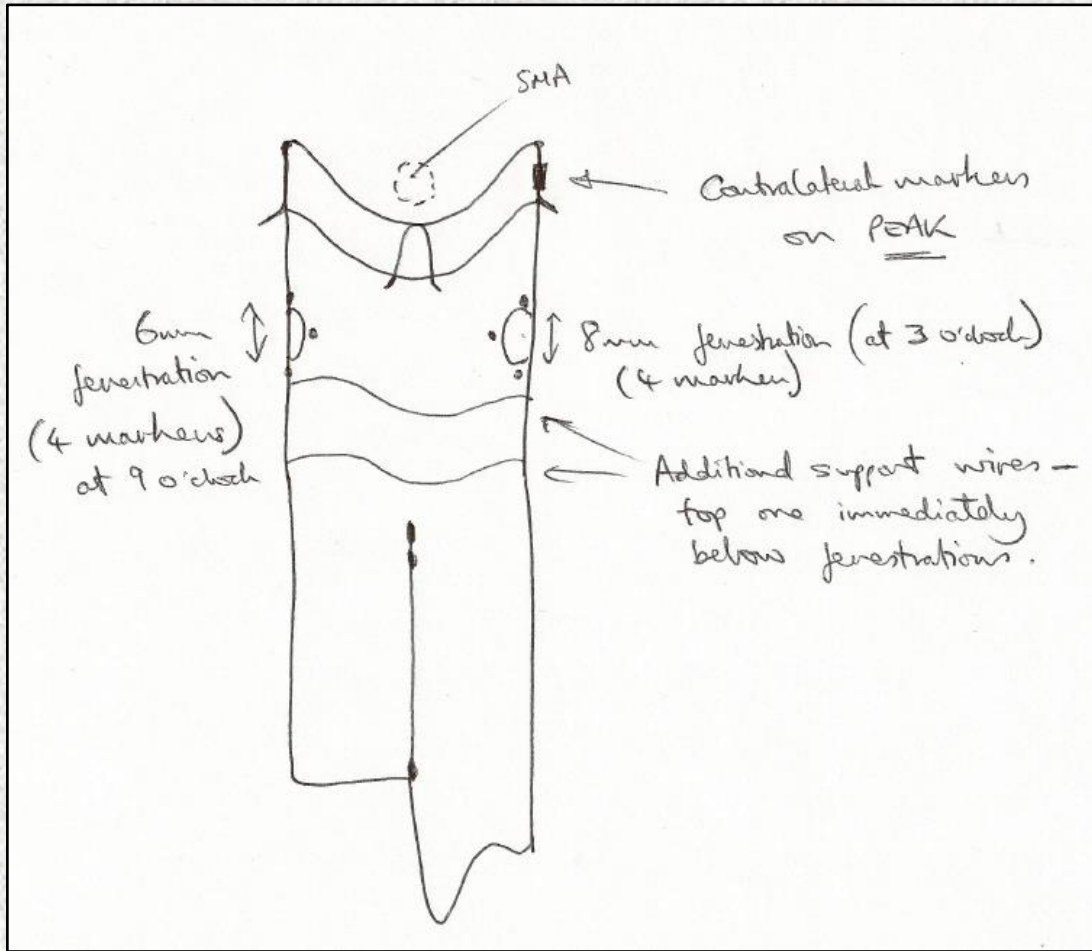 SMA
Contralateral markers
on PEAK
6mm
fenestration
(4 markers)
at 9 o'clock
8mm fenestration (at 3 o'clock)
(4 markers)
Additional support wires –
top one immediately
below fenestrations.